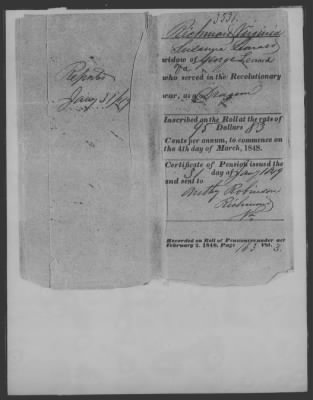 3531.
Richmond Virginia
Susanna Leonard
widow of George Leonard
who served in the Revolutionary
war, as a Dragoon
Inscribed on the Roll at the rate of
95 Dollars 83
Cents per annum, to commence on
the 4th day of March, 1848.
Certificate of Pension issued the
31 day of Jany 1849
and sent to
Robinson
Richmond
Va
Recorded on Roll of Pensioners under act
February 2, 1848, Page 163 Vol. 3.
Reported
Jany 31/49